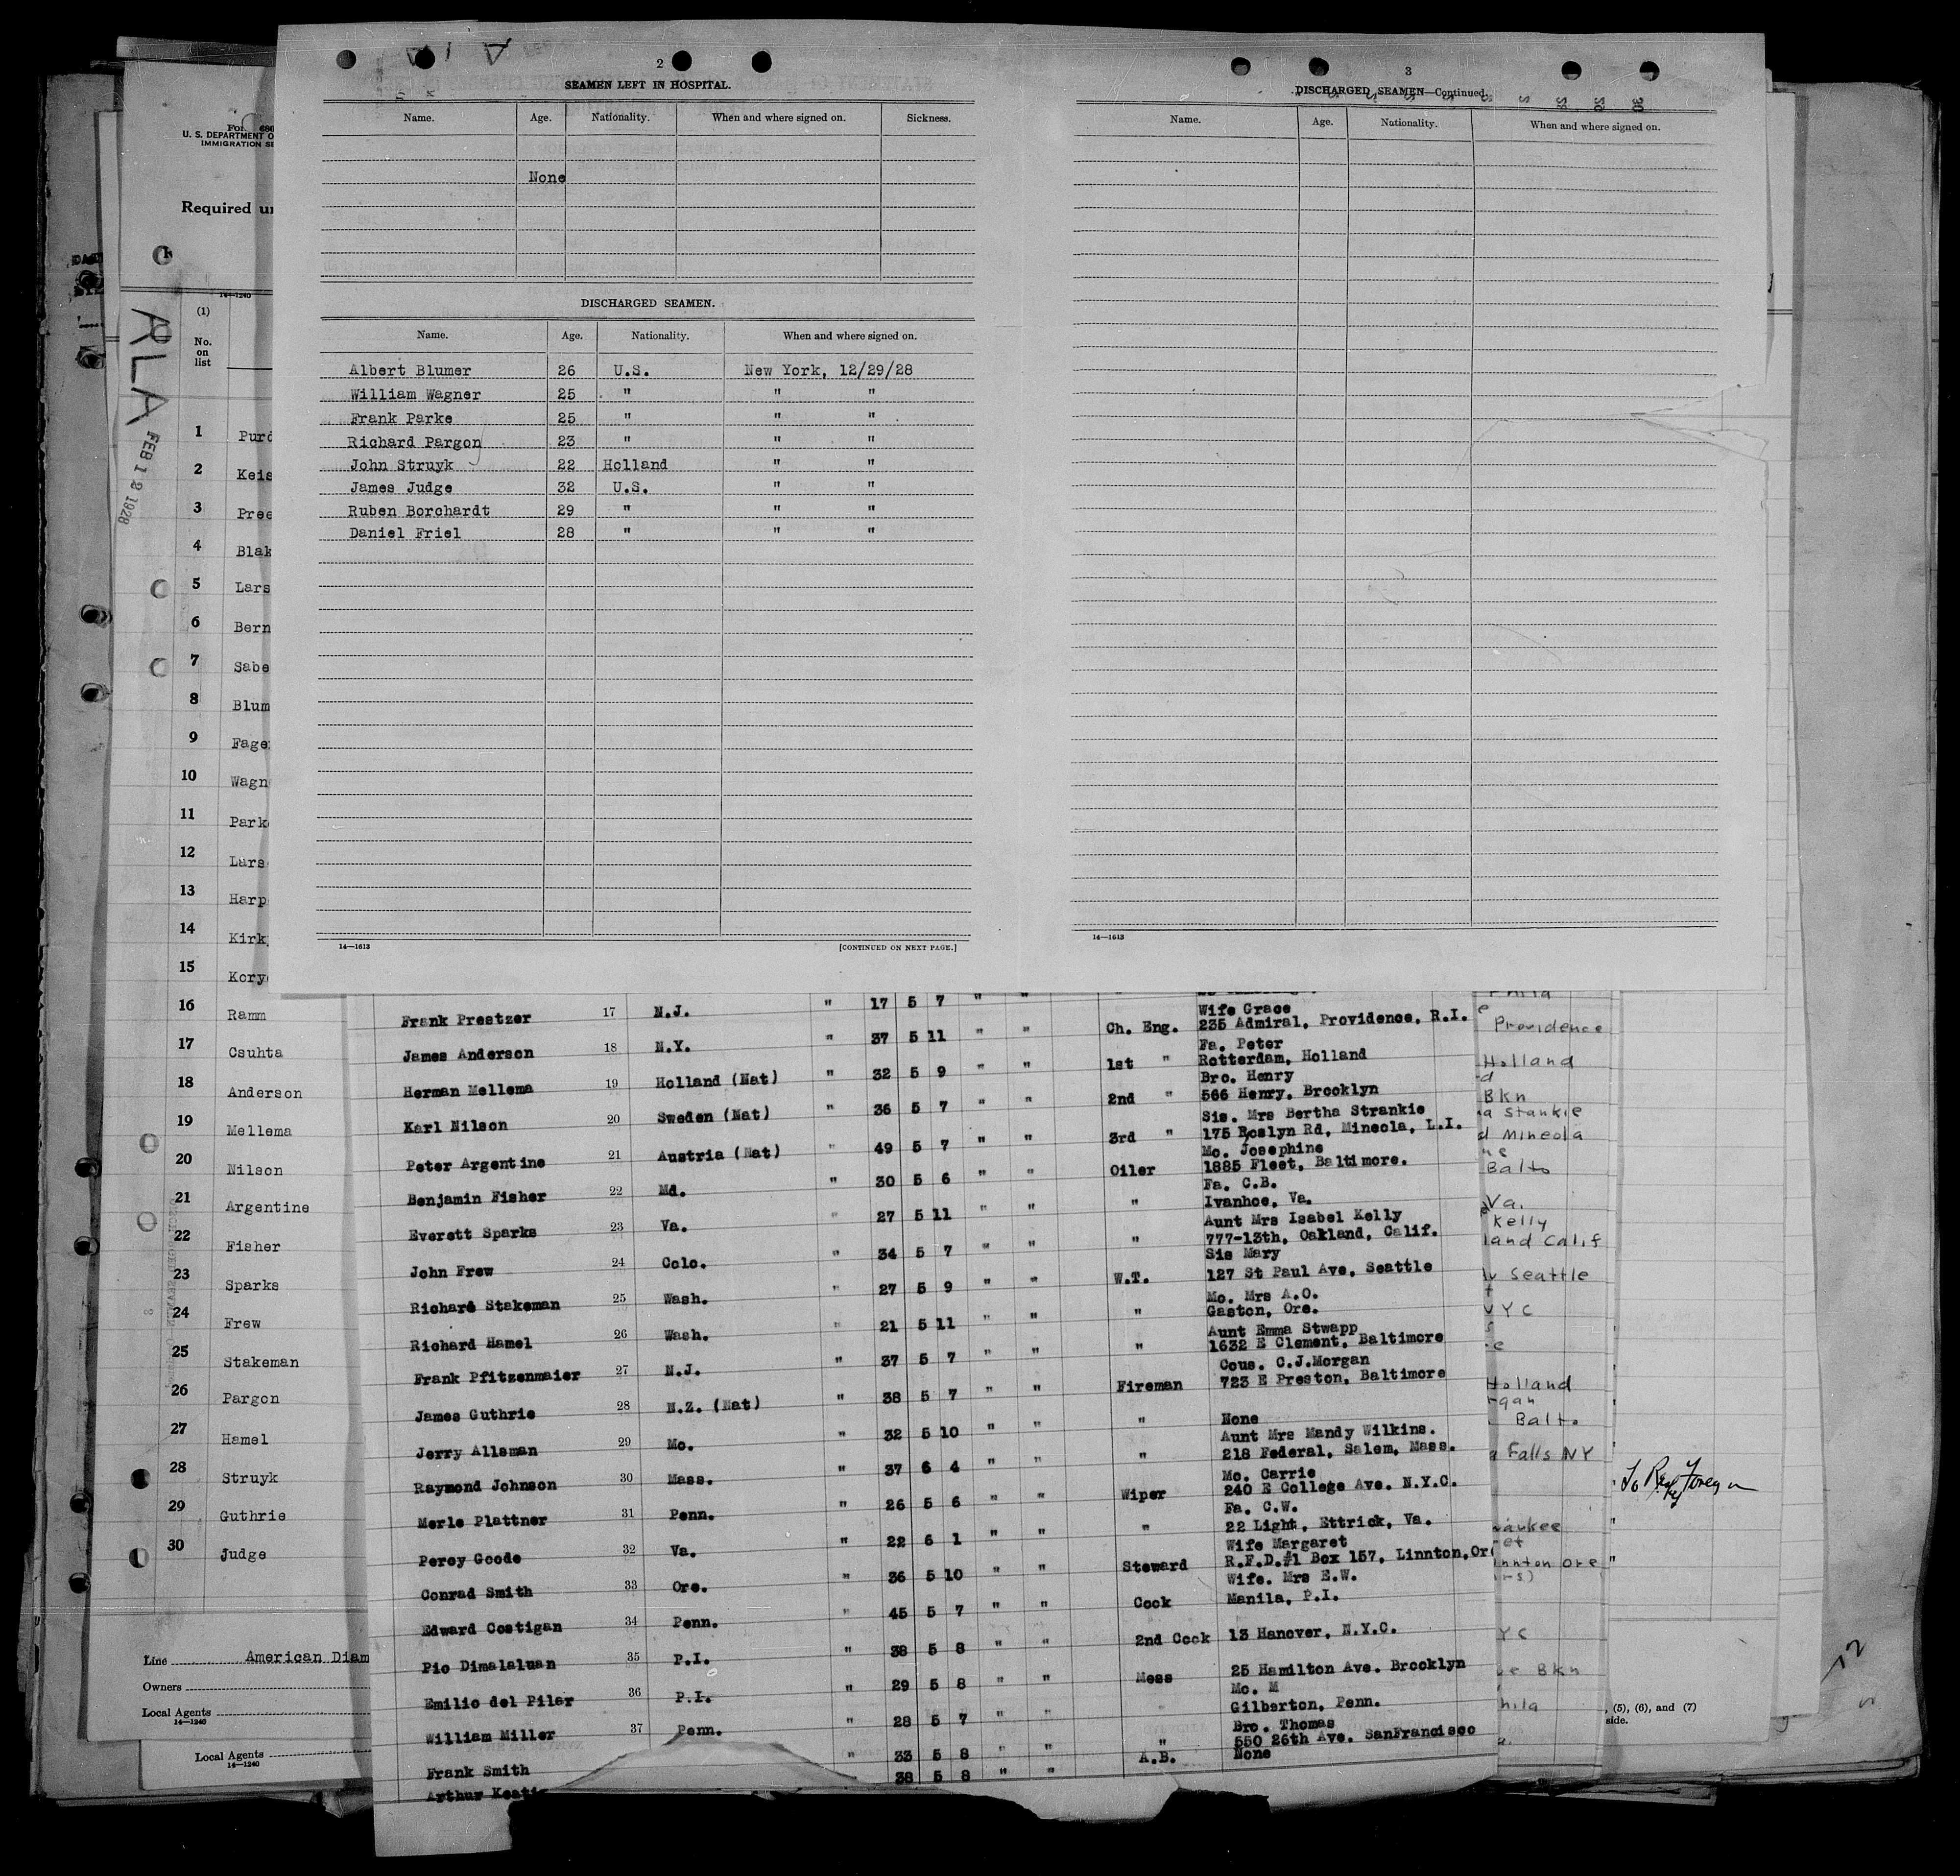 2
SEAMEN LEFT IN HOSPITAL.
Name. Age. Nationality. When and where signed on. Sickness.
None
DISCHARGED SEAMEN.
Name. Age. Nationality. When and where signed on.
Albert Blumer 26 U.S. New York, 12/29/28
William Wagner 25 " " "
Frank Parke 25 " " "
Richard Pargon 23 " " "
John Struyk 22 Holland " "
James Judge 32 U.S. " "
Ruben Borchardt 29 " " "
Daniel Friel 28 " " "
14—1613 [CONTINUED ON NEXT PAGE.]
3
DISCHARGED SEAMEN—Continued.
Name. Age. Nationality. When and where signed on.
14—1613
U. S. DEPARTMENT O
IMMIGRATION SE
Required un
14—1240
(1)
No.
on
list
RLA
FEB 12 1928
1 Purd
2 Keis
3 Pree
4 Blak
5 Lars
6 Bern
7 Sabe
8 Blum
9 Fage
10 Wagn
11 Park
12 Lars
13 Harp
14 Kirk
15 Kory
16 Ramm
17 Csuhta
18 Anderson
19 Mellema
20 Nilson
21 Argentine
22 Fisher
23 Sparks
24 Frew
25 Stakeman
26 Pargon
27 Hamel
28 Struyk
29 Guthrie
30 Judge
Line American Diam
Owners
Local Agents
14—1240
Local Agents
14—1240
" 17 5 7 " "
Frank Prestzer 17 N.J.
Wife Grace
" 37 5 11 " " Ch. Eng. 235 Admiral, Providence, R.I.
James Anderson 18 N.Y.
Fa. Peter
" 32 5 9 " " 1st " Rotterdam, Holland
Herman Mellema 19 Holland (Nat)
Bro. Henry
" 36 5 7 " " 2nd " 566 Henry, Brooklyn
Karl Nilson 20 Sweden (Nat)
Sis. Mrs Bertha Strankie
" 49 5 7 " " 3rd " 175 Roslyn Rd, Mineola, L.I.
Peter Argentine 21 Austria (Nat)
Mo. Josephine
" 30 5 6 " " Oiler 1885 Fleet, Baltimore.
Benjamin Fisher 22 Md.
Fa. C.B.
" 27 5 11 " " " Ivanhoe, Va.
Everett Sparks 23 Va.
Aunt Mrs Isabel Kelly
" 34 5 7 " " " 777-13th, Oakland, Calif.
John Frew 24 Colo.
Sis Mary
" 27 5 9 " " W.T. 127 St Paul Ave, Seattle
Richard Stakeman 25 Wash.
Mo. Mrs A.O.
" 21 5 11 " " " Gaston, Ore.
Richard Hamel 26 Wash.
Aunt Emma Stwapp
" 37 5 7 " " " 1632 E Clement, Baltimore
Frank Pfitzenmaier 27 N.J.
Cous. C.J.Morgan
" 38 5 7 " " Fireman 723 E Preston, Baltimore
James Guthrie 28 N.Z. (Nat)
" 32 5 10 " " " None
Jerry Alleman 29 Mo.
Aunt Mrs Mandy Wilkins.
" 37 6 4 " " " 218 Federal, Salem, Mass.
Raymond Johnson 30 Mass.
Mo. Carrie
" 26 5 6 " " Wiper 240 E College Ave. N.Y.C.
Merle Plattner 31 Penn.
Fa. C.W.
" 22 6 1 " " " 22 Light, Ettrick, Va.
Percy Goode 32 Va.
Wife Margaret
" 36 5 10 " " Steward R.F.D.#1 Box 157, Linnton,Or
Conrad Smith 33 Ore.
Wife. Mrs E.W.
" 45 5 7 " " Cook Manila, P.I.
Edward Costigan 34 Penn.
" 38 5 8 " " 2nd Cook 13 Hanover, N.Y.C.
Pio Dimalaluan 35 P.I.
" 29 5 8 " " Mess 25 Hamilton Ave. Brooklyn
Emilio del Pilar 36 P.I.
Mo. M
" 28 5 7 " Gilberton, Penn.
William Miller 37 Penn.
Bro. Thomas
" 33 5 8 " " " 550 26th Ave. SanFrancisco
Frank Smith
38 5 8 " " A.B. None
Arthur Keati
Phila
Providence
Holland
Bkn
a Stankie
d Mineola
Balto
Va.
Kelly
land Calif
Seattle
YC
Holland
rgan
Balt.
a Falls NY
To Reship Foreign
waukee
et
innton Ore "
rs)
YC
e Bkn
hila
, (5), (6), and (7)
side.